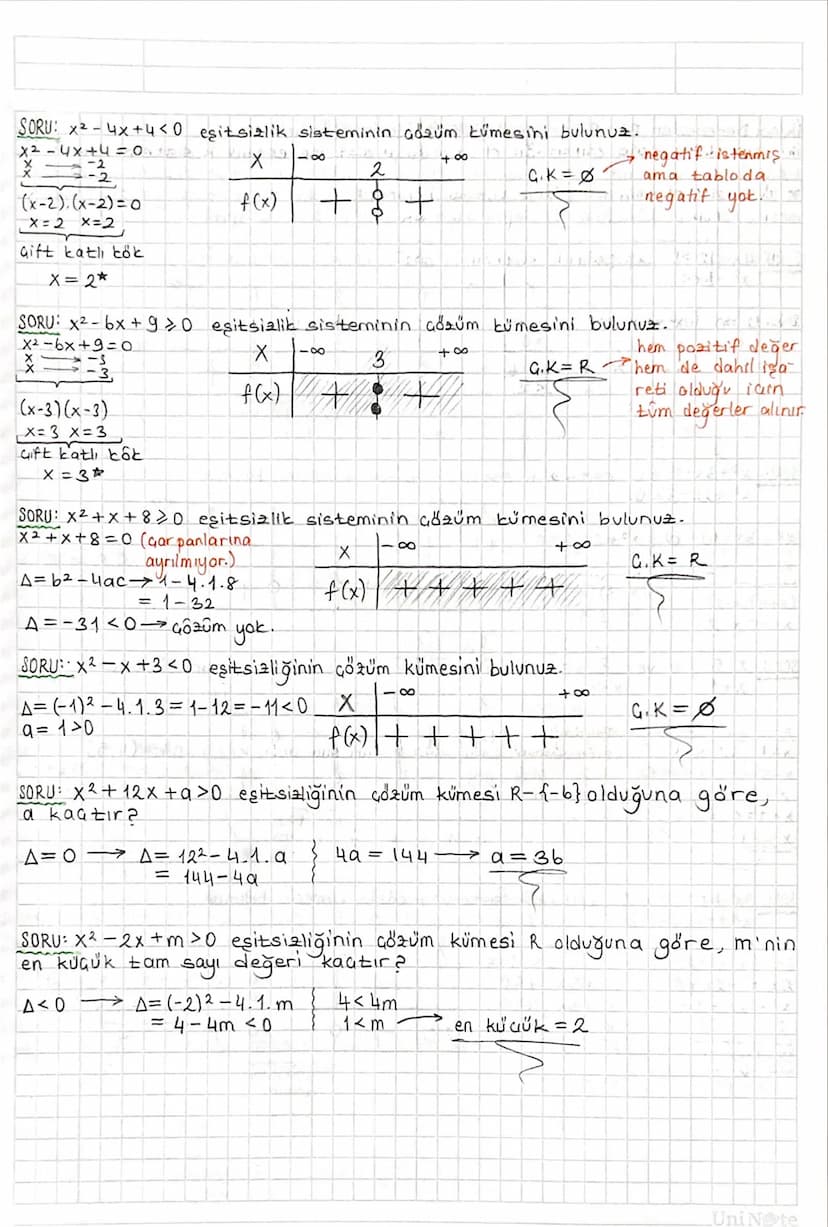 SORU: x² - 4x + 4 < 0 eşitsizlik sisteminin çözüm kümesini bulunuz.
x² - 4x + 4 = 0
x -2
x -2
(x-2).(x-2)=0
x=2 x=2
Çift katlı kök
x = 2*
x -∞ 2 +∞
f(x) + +
Ç.K = ∅
→ negatif istenmiş
ama tabloda
negatif yok.
SORU: x² - 6x + 9 ⩾ 0 eşitsizlik sisteminin çözüm kümesini bulunuz.
x² - 6x + 9 = 0
x → -3
x → -3
(x-3)(x-3)
x=3 x=3
Çift katlı kök
x = 3*
x -∞ 3 +∞
f(x) + +
Ç.K = R
→ hem pozitif değer
hem de dahil işa-
reti olduğu için
tüm değerler alınır.
SORU: x² + x + 8 ⩾ 0 eşitsizlik sisteminin çözüm kümesini bulunuz.
x² + x + 8 = 0 (Çarpanlarına
ayrılmıyor.)
Δ = b² - 4ac → 1 - 4.1.8
= 1 - 32
Δ = -31 < 0 → Çözüm yok.
x -∞ +∞
f(x) + + + + +
Ç.K = R
SORU: x² - x + 3 < 0 eşitsizliğinin çözüm kümesini bulunuz.
Δ = (-1)² - 4.1.3 = 1 - 12 = -11 < 0
a = 1 > 0
x -∞ +∞
f(x) + + + + +
Ç.K = ∅
SORU: x² + 12x + a > 0 eşitsizliğinin çözüm kümesi R-{-6} olduğuna göre,
a kaçtır?
Δ = 0 → Δ = 12² - 4.1.a
= 144 - 4a
4a = 144 → a = 36
SORU: x² - 2x + m > 0 eşitsizliğinin çözüm kümesi R olduğuna göre, m'nin
en küçük tam sayı değeri kaçtır?
Δ < 0 → Δ = (-2)² - 4.1.m
= 4 - 4m < 0
4 < 4m
1 < m → en küçük = 2
UniNote